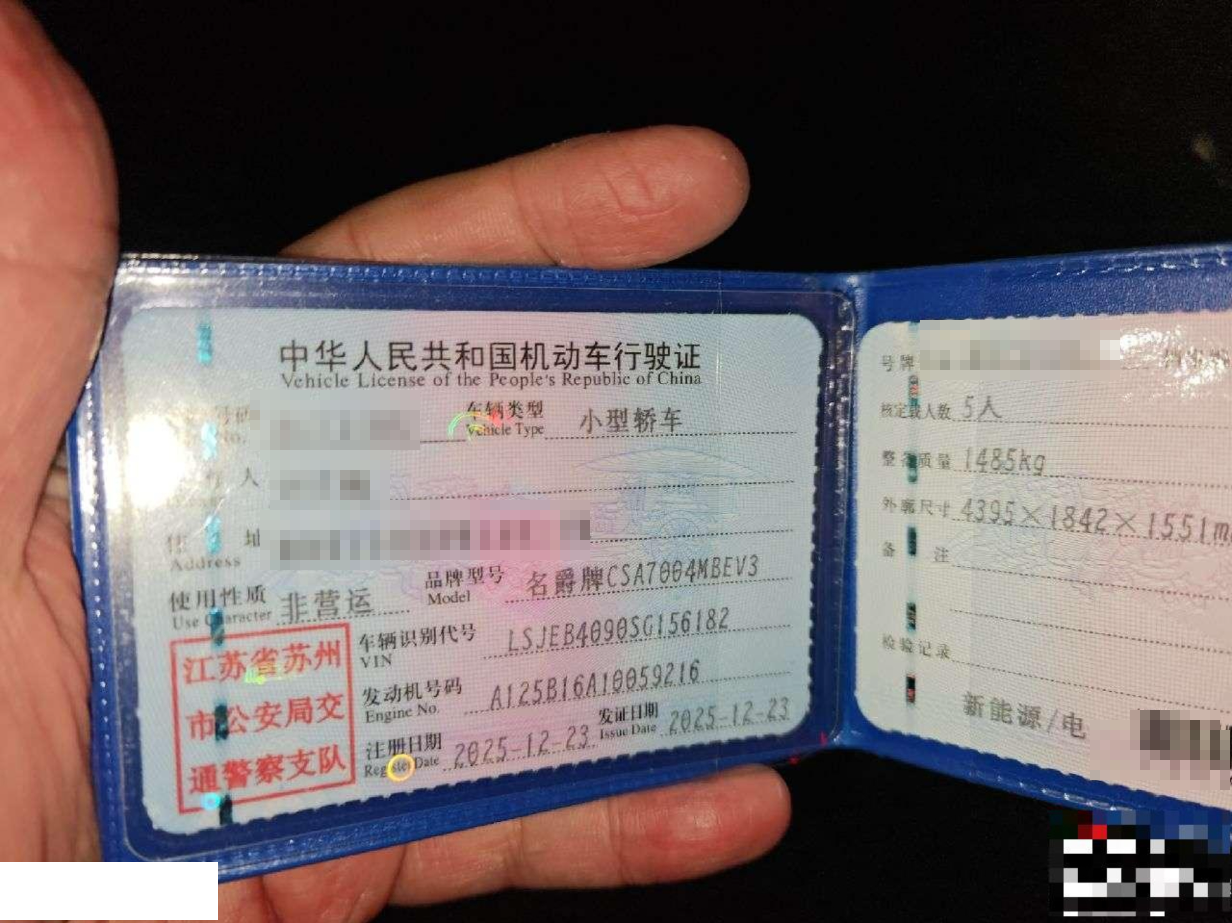 中华人民共和国机动车行驶证
Vehicle License of the People's Republic of China
号码 车辆类型 小型轿车
No. Vehicle Type
人
住 址
Address
使用性质 非营运 品牌型号 名爵牌CSA7004MBEV3
Use Character Model
江苏省苏州
市公安局交
通警察支队
车辆识别代号 LSJEB4090SG156182
VIN
发动机号码 A125B16A10059216
Engine No.
注册日期 2025-12-23 发证日期 2025-12-23
Register Date Issue Date
号牌
核定载人数 5人
整备质量 1485kg
外廓尺寸 4395×1842×1551m
备 注
检验记录
新能源/电